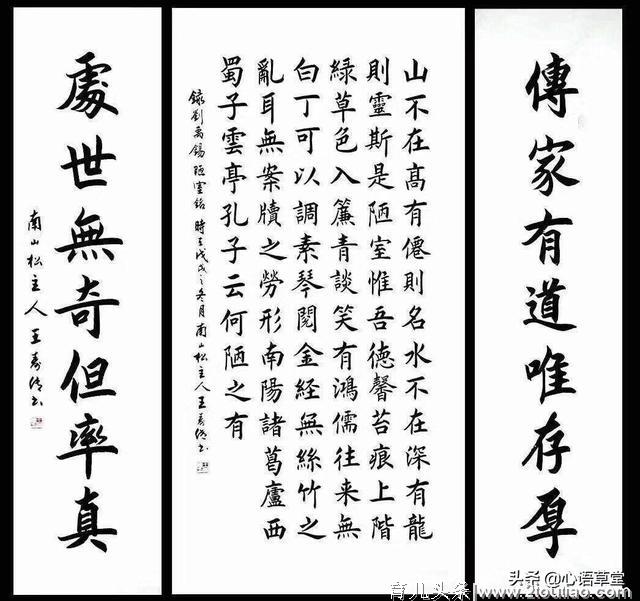 傳家有道唯存厚
山不在高有僊則名水不在深有龍
則靈斯是陋室惟吾德馨苔痕上階
綠草色入簾青談笑有鴻儒往来無
白丁可以調素琴閱金經無絲竹之
亂耳無案牘之勞形南陽諸葛廬西
蜀子雲亭孔子云何陋之有
錄劉禹錫陋室銘 時 冬月南山松主人王
處世無奇但率真
南山松主人王
头条 @心语草堂
育儿头条